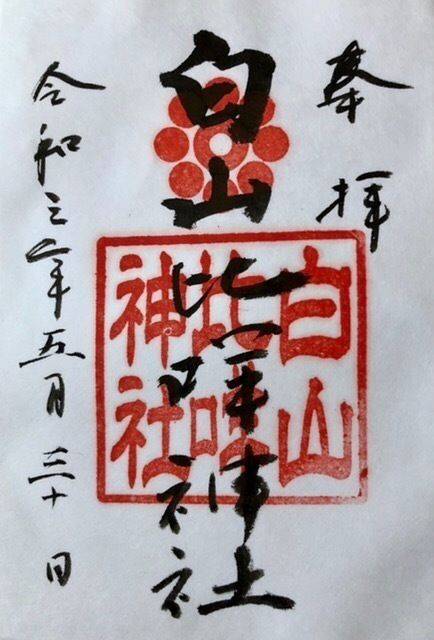 奉拝
白山比咩神社
白山
比咩
神社
令和三年五月三十日